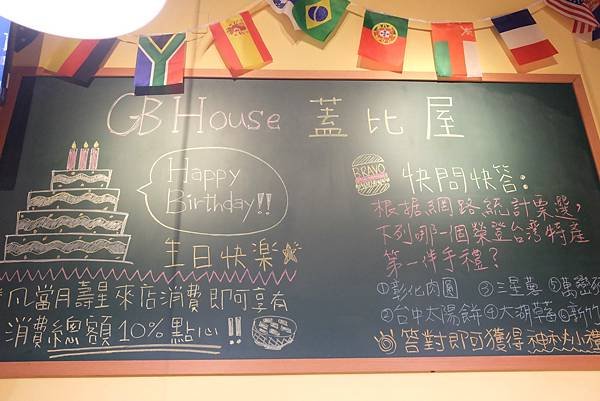 GB House 蓋比屋
Happy
Birthday!!
生日快樂
凡當月壽星來店消費即可享有
消費總額10%點心!!
BRAVO
快問快答:
根据網路統計票選,
下列哪一個榮登台灣特產
第一件手禮?
①彰化肉圓 ③三星蔥 ⑤萬巒
②台中太陽餅 ④大湖草莓 ⑥新竹
答對即可獲得神秘小禮